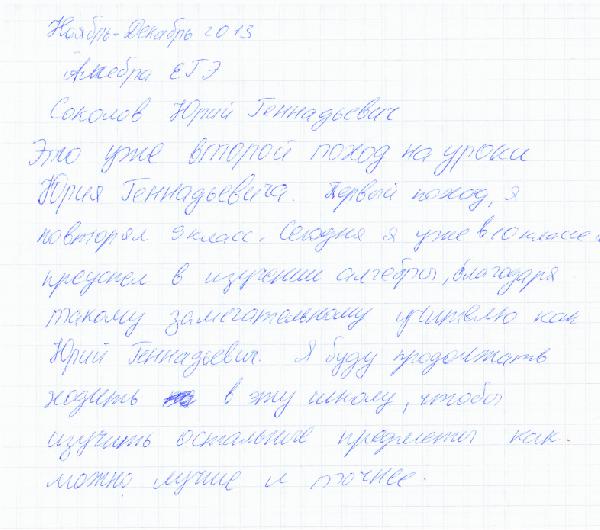 Ноябрь-Декабрь 2013
Алгебра ЕГЭ
Соколов Юрий Геннадьевич
Это уже второй поход на уроки
Юрия Геннадьевича. Первый поход, я
повторял 9 класс. Сегодня я уже в 10 классе и
преуспел в изучении алгебры, благодаря
такому замечательному учителю как
Юрий Геннадьевич. Я буду продолжать
ходить в эту школу, чтобы
изучить остальные предметы как
можно лучше и точнее.